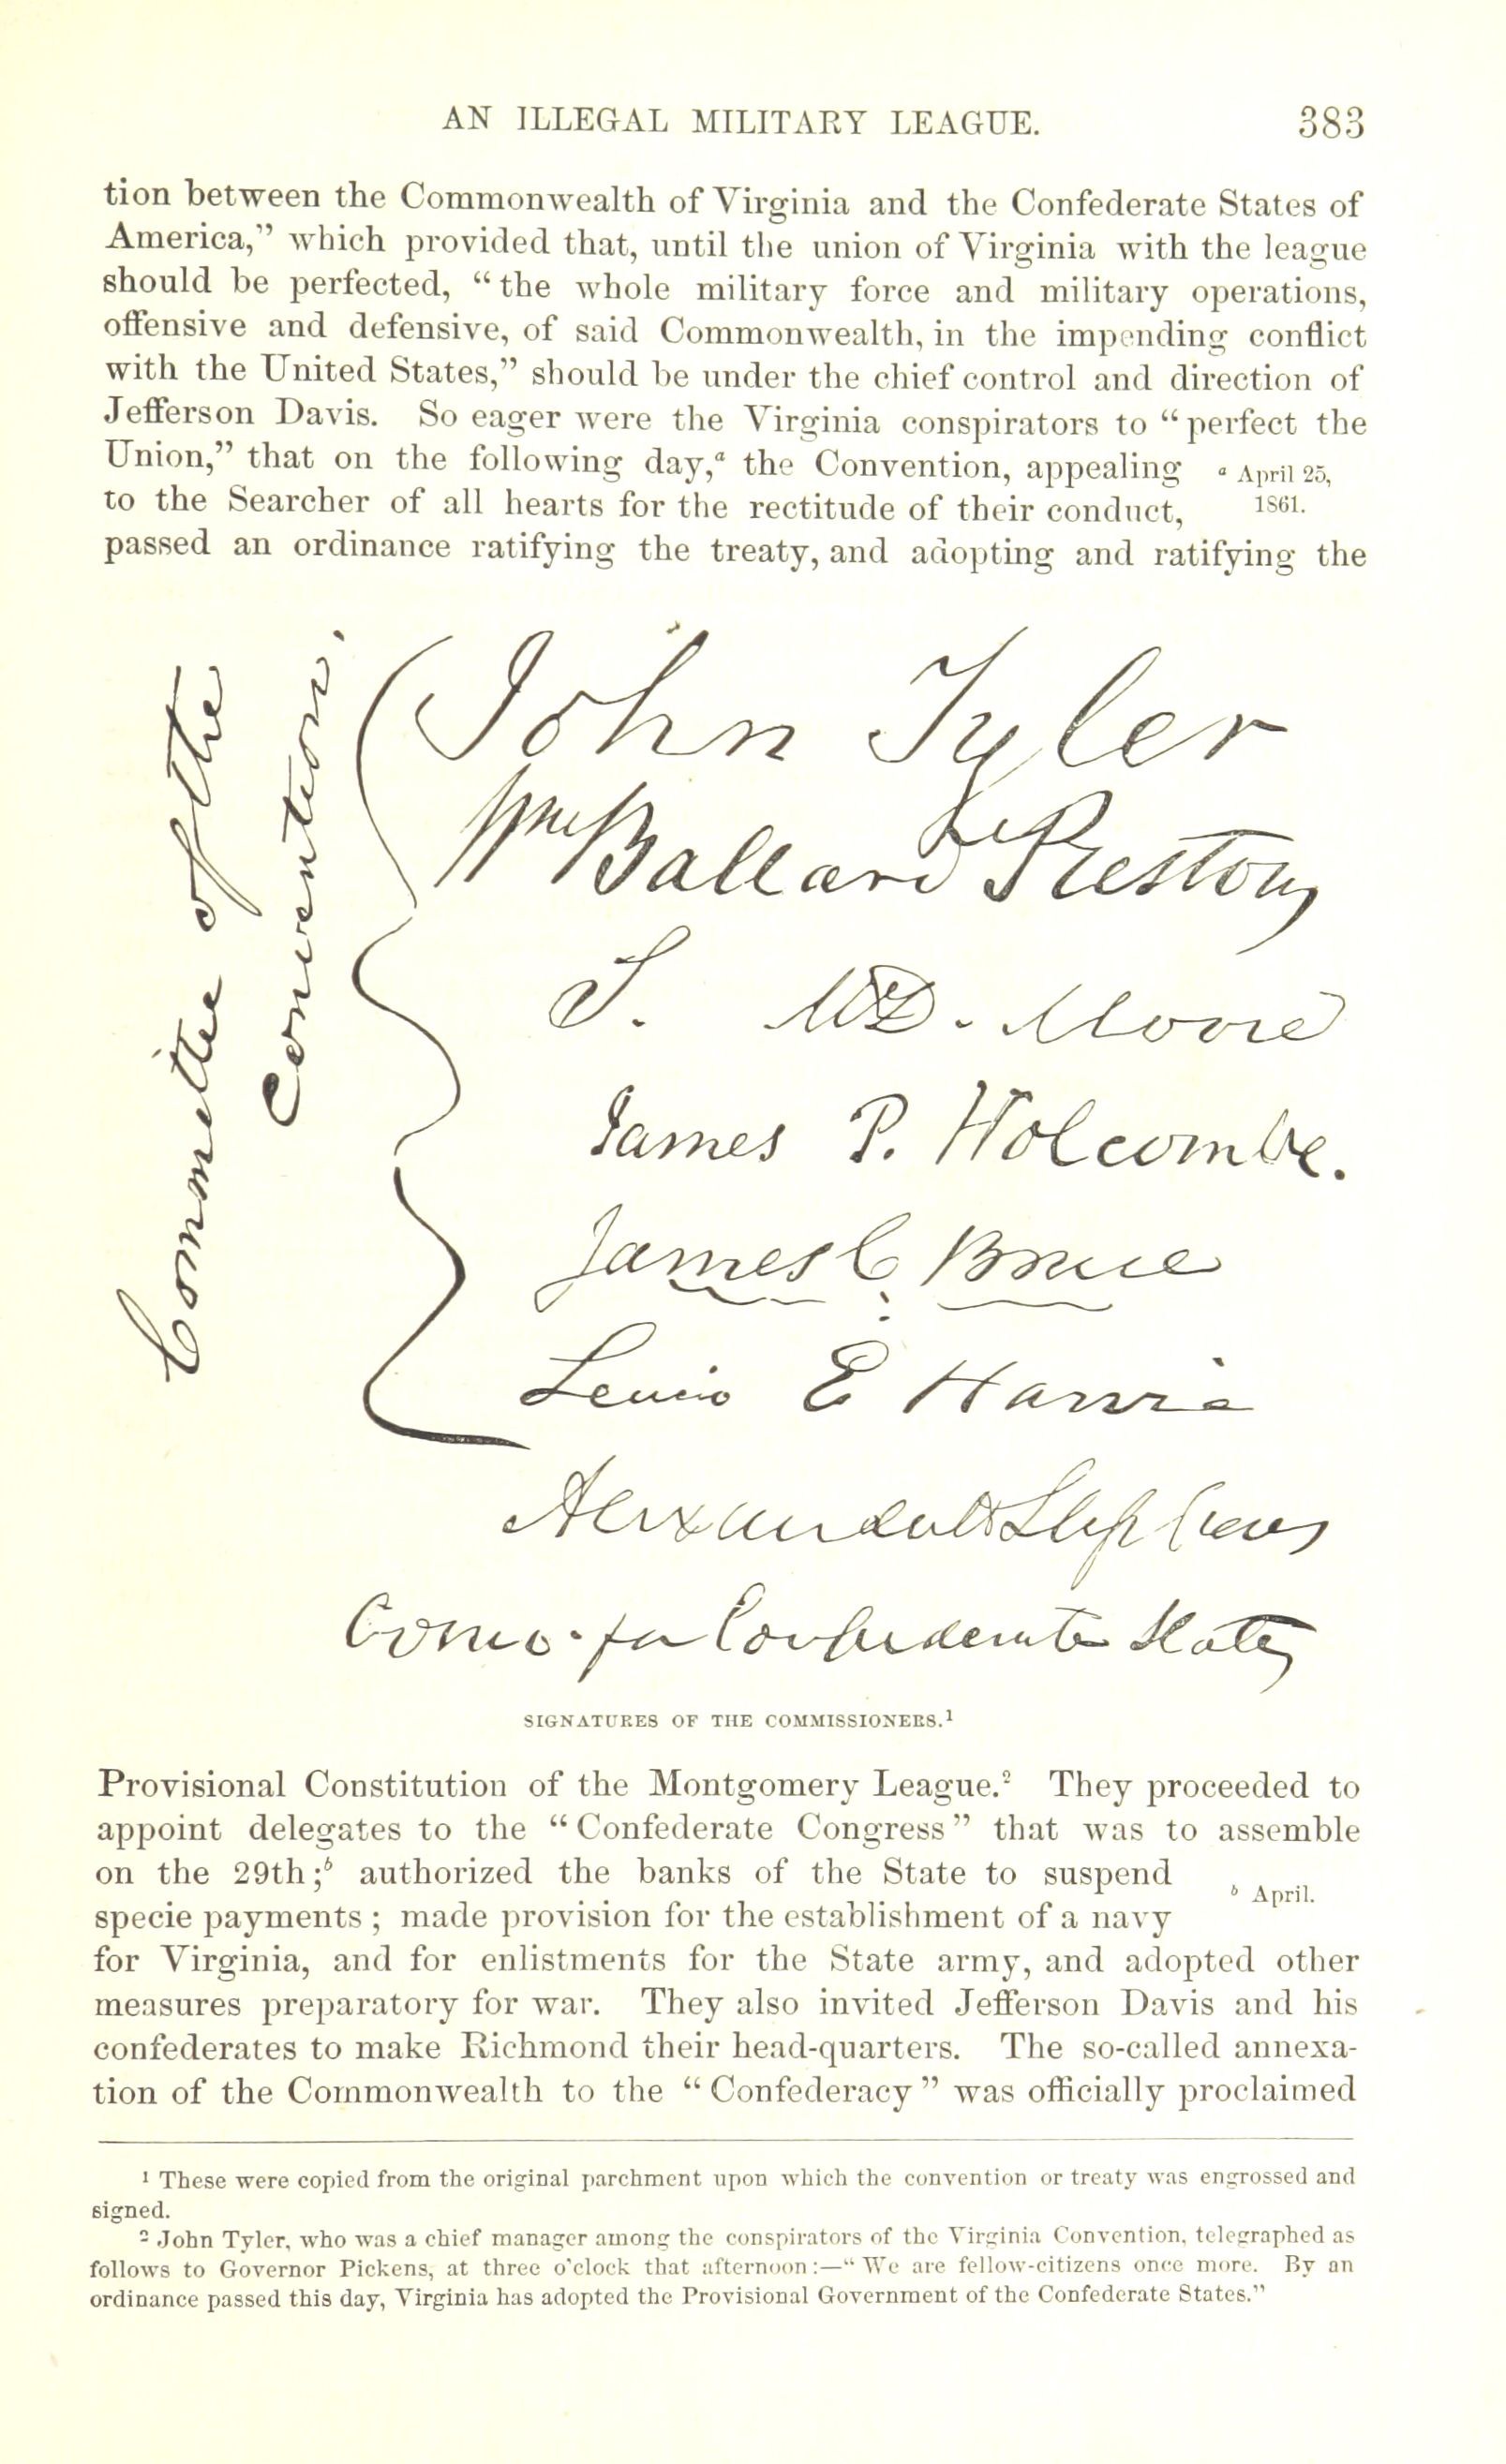 AN ILLEGAL MILITARY LEAGUE. 383
tion between the Commonwealth of Virginia and the Confederate States of
America,” which provided that, until the union of Virginia with the league
should be perfected, “the whole military force and military operations,
offensive and defensive, of said Commonwealth, in the impending conflict
with the United States,” should be under the chief control and direction of
Jefferson Davis. So eager were the Virginia conspirators to “perfect the
Union,” that on the following day,ᵃ the Convention, appealing ᵃ April 25,
to the Searcher of all hearts for the rectitude of their conduct, 1861.
passed an ordinance ratifying the treaty, and adopting and ratifying the
Committee of the
Convention.
John Tyler
Wm Ballard Preston
S. McD. Moore
James P. Holcombe.
James C. Bruce
Lewis E Harvie
Alexander H Stephens
Comr. for Confederate States
SIGNATURES OF THE COMMISSIONERS.¹
Provisional Constitution of the Montgomery League.² They proceeded to
appoint delegates to the “Confederate Congress” that was to assemble
on the 29th;ᵇ authorized the banks of the State to suspend
ᵇ April.
specie payments; made provision for the establishment of a navy
for Virginia, and for enlistments for the State army, and adopted other
measures preparatory for war. They also invited Jefferson Davis and his
confederates to make Richmond their head-quarters. The so-called annexa-
tion of the Commonwealth to the “Confederacy” was officially proclaimed
¹ These were copied from the original parchment upon which the convention or treaty was engrossed and
signed.
² John Tyler, who was a chief manager among the conspirators of the Virginia Convention, telegraphed as
follows to Governor Pickens, at three o’clock that afternoon:—“We are fellow-citizens once more. By an
ordinance passed this day, Virginia has adopted the Provisional Government of the Confederate States.”